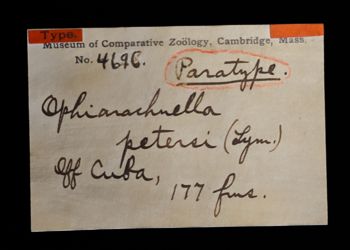 Type.
Museum of Comparative Zoölogy, Cambridge, Mass.
No. 4696.
Paratype.
Ophiarachnella
petersi (Lym.)
Off Cuba,
177 fms.